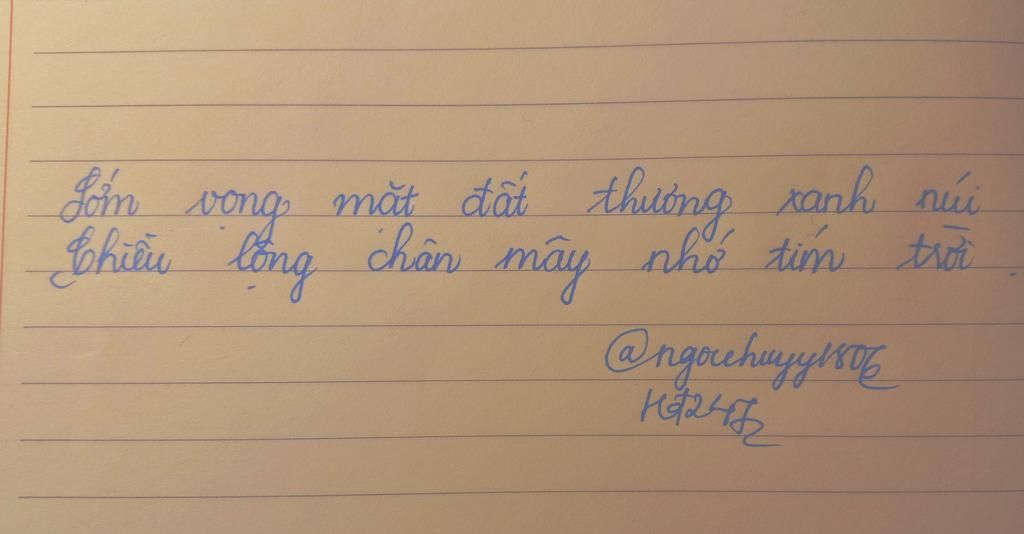 Sớm vọng mặt đất thương xanh núi
Chiều lộng chân mây nhớ tím trời.
@ngocchuyy1806
Hđ247